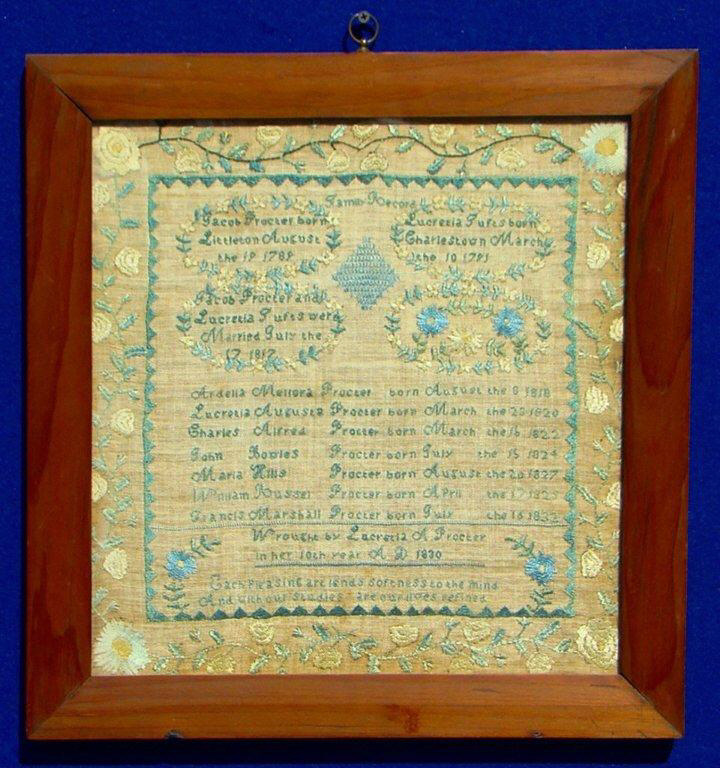 Family Record
Jacob Procter born
Littleton August
the 19 1789
Lucretia Tufts born
Charlestown March
the 10 1791
Jacob Procter and
Lucretia Tufts were
Married July the
17 1817
Ardelia Mellora Procter born August the 8 1818
Lucretia Augusta Procter born March the 25 1820
Charles Alfred Procter born March the 16 1822
John Bowles Procter born July the 15 1824
Maria Hills Procter born August the 20 1827
William Russel Procter born April the 17
Francis Marshall Procter born July the 16 1832
Wrought by Lucretia A Procter
in her 10th year A D 1830
Each pleasing art lends softness to the mind
And with our studies are our lives refined